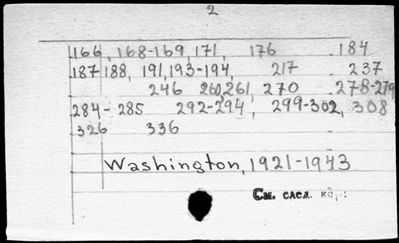 2
166, 168-169, 171, 176 184
187 188, 191, 193-194, 217 237
246 260, 261, 270 278-279
284-285 292-294, 299-302, 308
326 336
Washington, 1921-1943
См. след. кар.